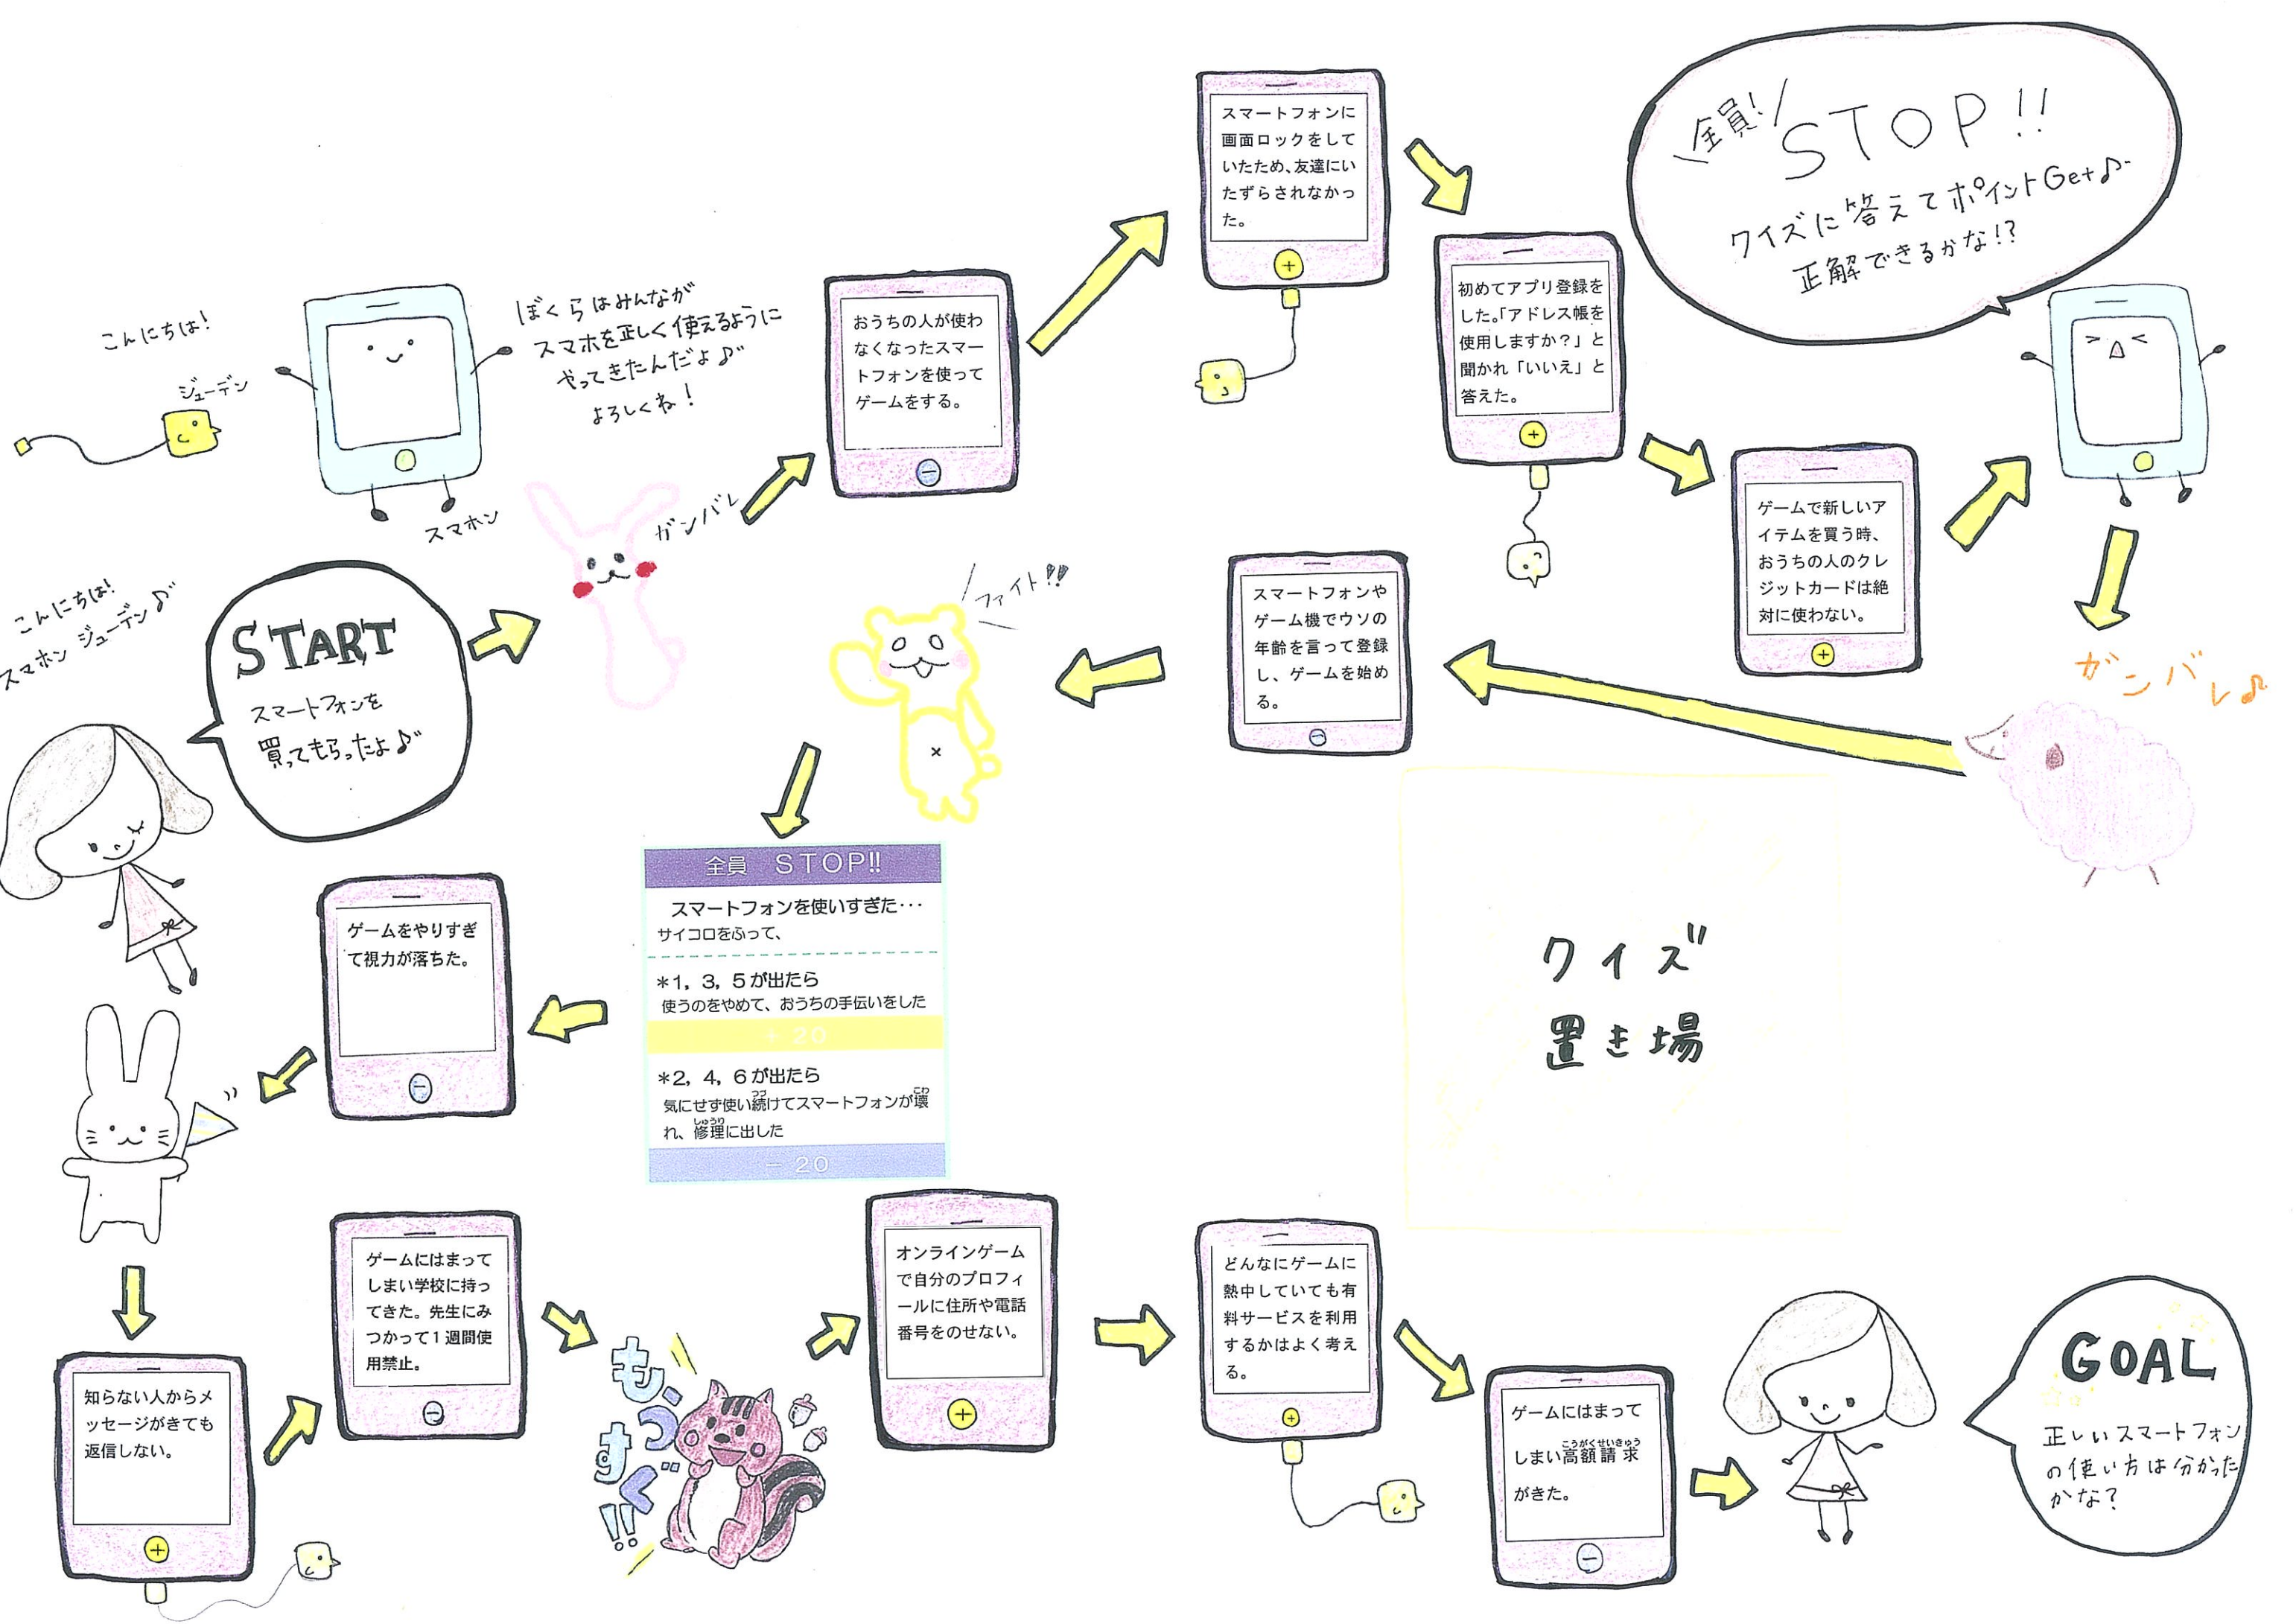 こんにちは!
ジューデン
ぼくらはみんなが
スマホを正しく使えるように
やってきたんだよ♪
よろしくね!
スマホン
こんにちは!
スマホン ジューデン♪
START
スマートフォンを
買ってもらったよ♪
ガンバレ
おうちの人が使わ
なくなったスマー
トフォンを使って
ゲームをする。
−
スマートフォンに
画面ロックをして
いたため、友達にい
たずらされなかっ
た。
+
初めてアプリ登録を
した。「アドレス帳を
使用しますか?」と
聞かれ「いいえ」と
答えた。
+
ゲームで新しいア
イテムを買う時、
おうちの人のクレ
ジットカードは絶
対に使わない。
+
\全員!/
STOP!!
クイズに答えてポイントGet♪
正解できるかな!?
ガンバレ♪
スマートフォンや
ゲーム機でウソの
年齢を言って登録
し、ゲームを始め
る。
−
ファイト!!
クイズ
置き場
全員 STOP!!
スマートフォンを使いすぎた・・・
サイコロをふって、
*1, 3, 5が出たら
使うのをやめて、おうちの手伝いをした
+ 20
*2, 4, 6が出たら
つづ こわ
気にせず使い続けてスマートフォンが壊
しゅうり
れ、修理に出した
− 20
ゲームをやりすぎ
て視力が落ちた。
−
知らない人からメ
ッセージがきても
返信しない。
+
ゲームにはまって
しまい学校に持っ
てきた。先生にみ
つかって1週間使
用禁止。
−
もうすぐ!!
オンラインゲーム
で自分のプロフィ
ールに住所や電話
番号をのせない。
+
どんなにゲームに
熱中していても有
料サービスを利用
するかはよく考え
る。
+
ゲームにはまって
こうがくせいきゅう
しまい高額請求
がきた。
−
GOAL
正しいスマートフォン
の使い方は分かった
かな?